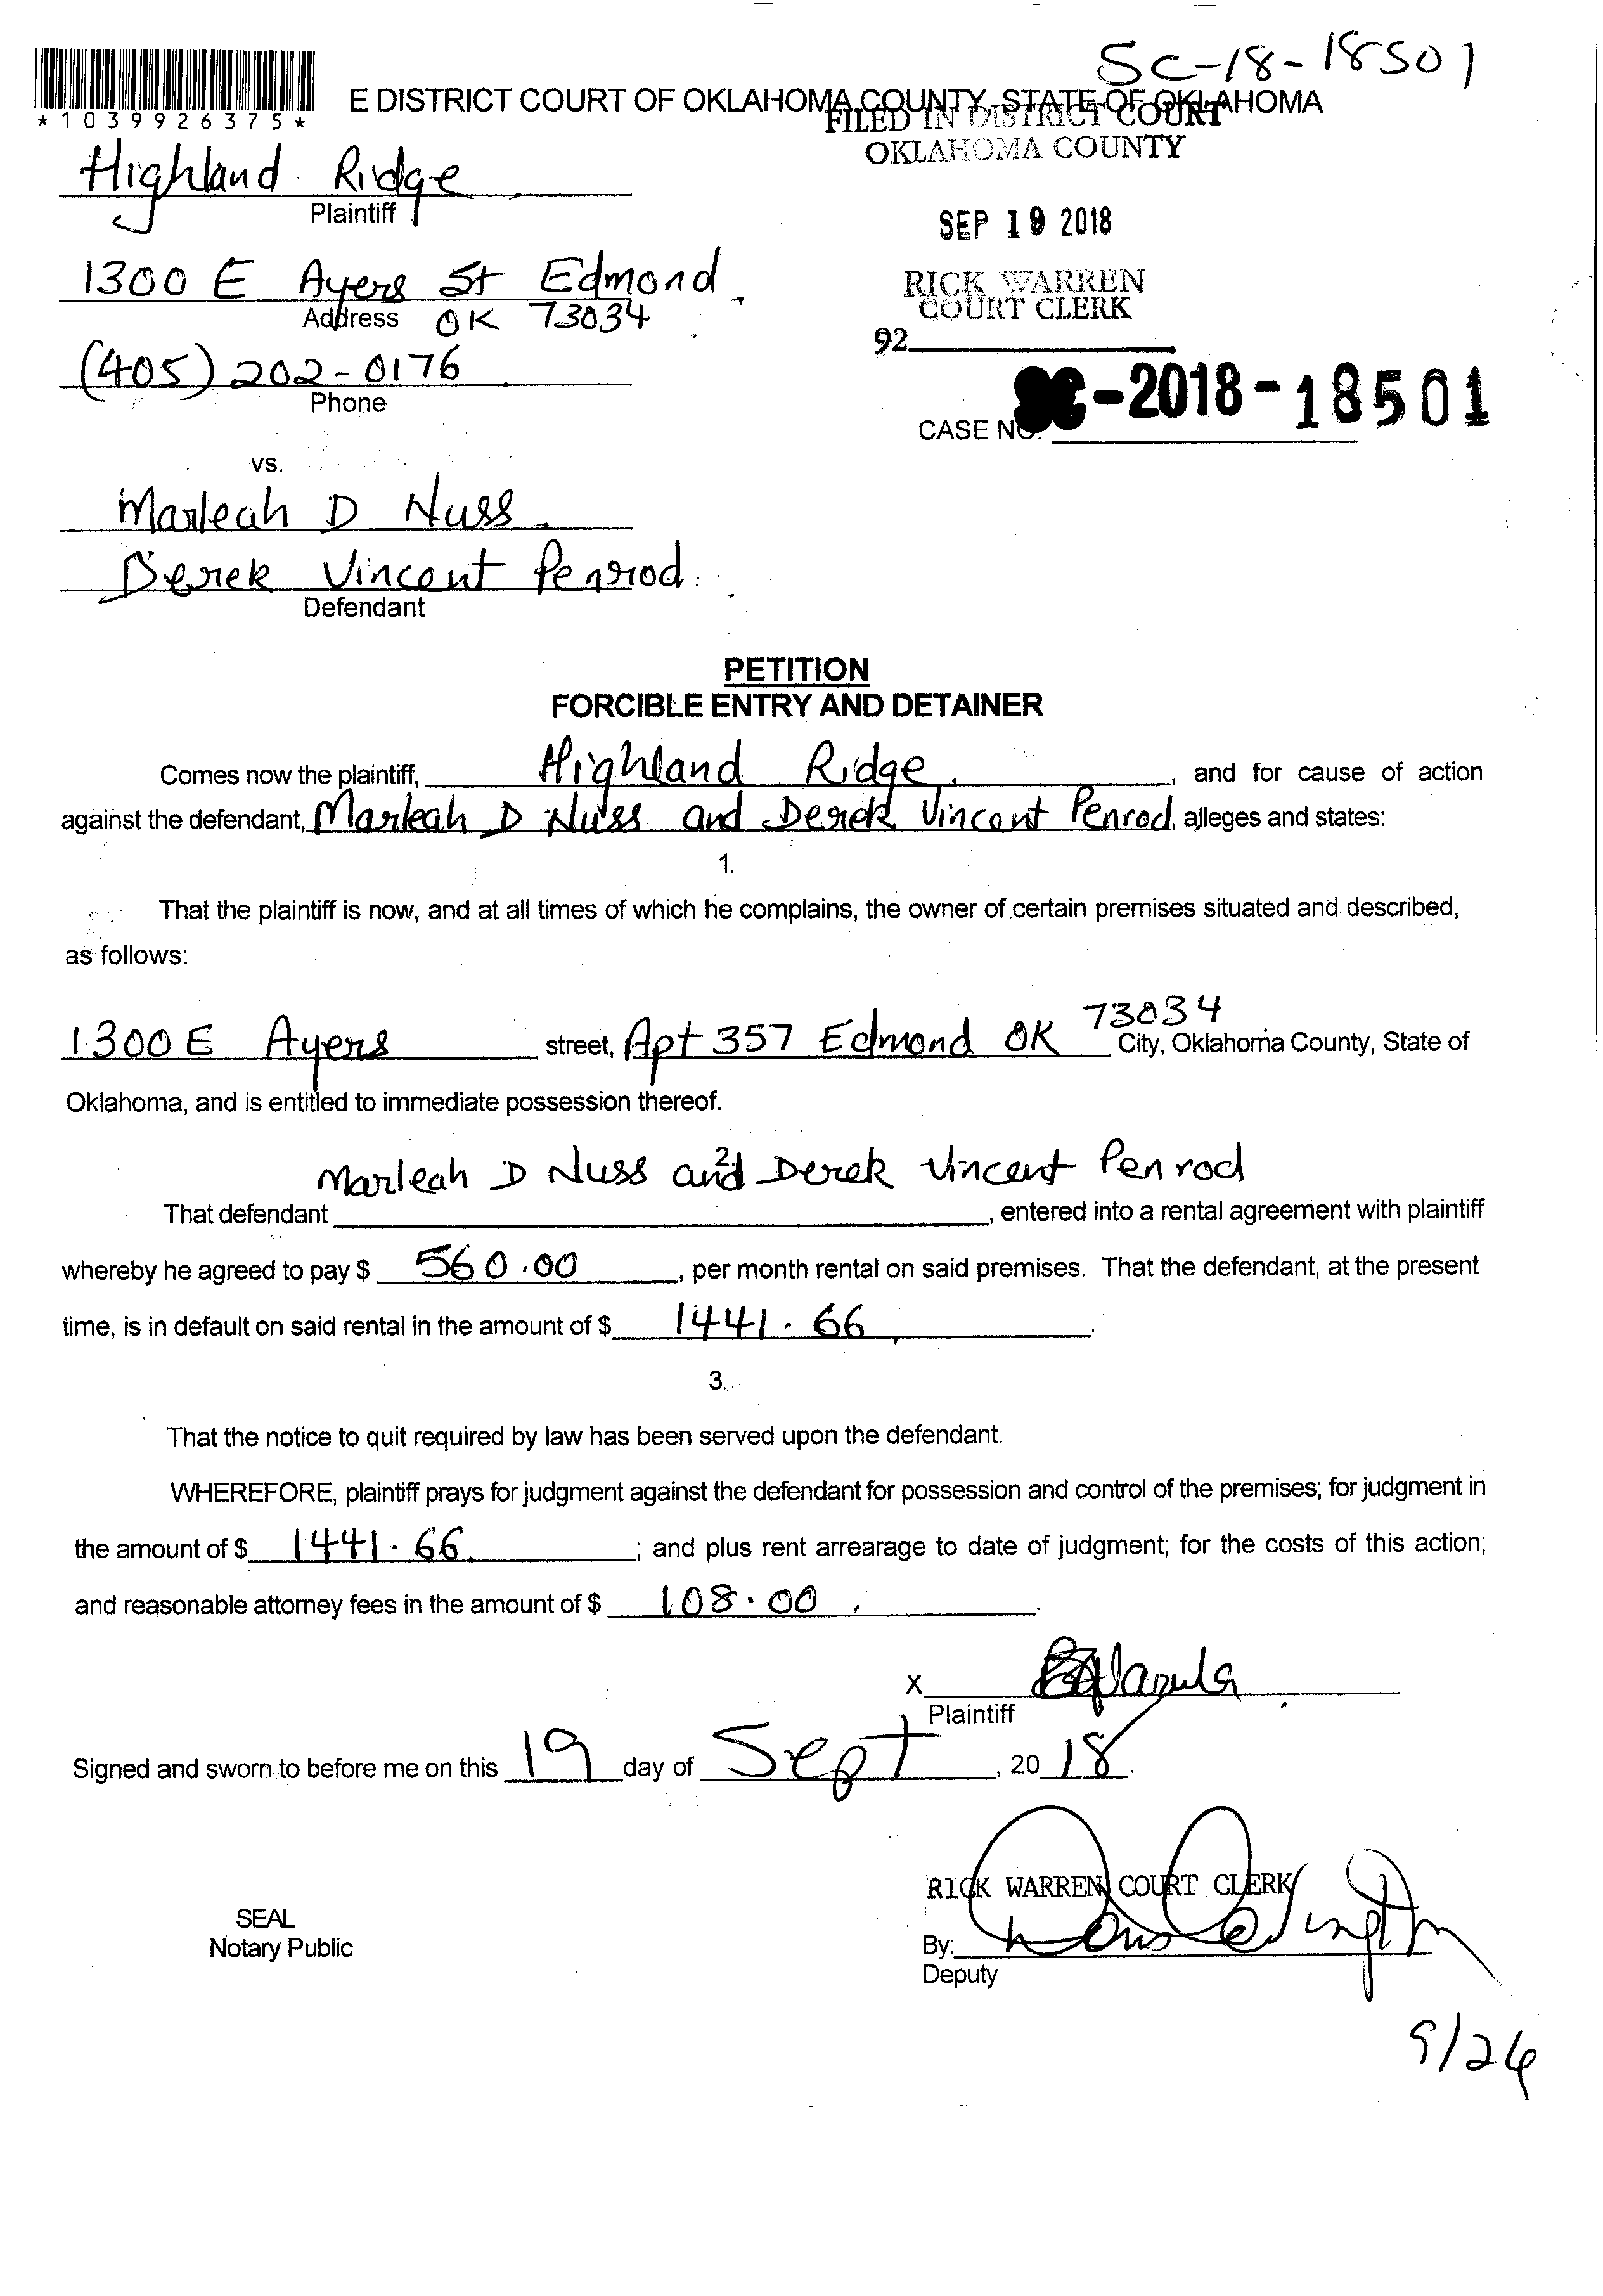 SC-18-18501
*1039926375*
E DISTRICT COURT OF OKLAHOMA COUNTY, STATE OF OKLAHOMA
FILED IN DISTRICT COURT
OKLAHOMA COUNTY
Highland Ridge
Plaintiff
SEP 19 2018
1300 E Ayers St Edmond
Address OK 73034
RICK WARREN
COURT CLERK
92
(405) 202-0176
Phone
CASE NO. -2018-18501
vs.
Marleah D Nuss
Derek Vincent Penrod
Defendant
PETITION
FORCIBLE ENTRY AND DETAINER
Comes now the plaintiff, Highland Ridge, and for cause of action
against the defendant, Marleah D Nuss and Derek Vincent Penrod, alleges and states:
1.
That the plaintiff is now, and at all times of which he complains, the owner of certain premises situated and described,
as follows:
1300 E Ayers street, Apt 357 Edmond OK 73034 City, Oklahoma County, State of
Oklahoma, and is entitled to immediate possession thereof.
2
Marleah D Nuss and Derek Vincent Penrod
That defendant , entered into a rental agreement with plaintiff
whereby he agreed to pay $ 560.00, per month rental on said premises. That the defendant, at the present
time, is in default on said rental in the amount of $ 1441.66.
3.
That the notice to quit required by law has been served upon the defendant.
WHEREFORE, plaintiff prays for judgment against the defendant for possession and control of the premises; for judgment in
the amount of $ 1441.66; and plus rent arrearage to date of judgment; for the costs of this action;
and reasonable attorney fees in the amount of $ 108.00.
X
Plaintiff
Signed and sworn to before me on this 19 day of Sept, 2018.
RICK WARREN COURT CLERK
SEAL
Notary Public
By:
Deputy
9/26